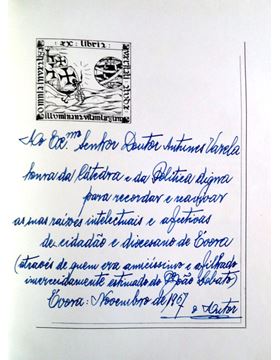 EX LIBRIS
Ao Exᵐᵒ Senhor Doutor Antunes Varela
honra da Cátedra e da Política digna
para recordar e reavivar
as suas raízes intelectuais e afectivas
de cidadão e diocesano de Évora
(através de quem era amicíssimo e afilhado
imerecidamente estimado do João Sabato)
Évora: Novembro de 1967
o Autor